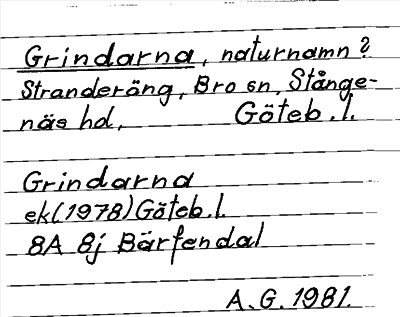 Grindarna, naturnamn?
Stranderäng, Bro sn, Stånge-
näs hd, Göteb. l.
Grindarna
ek (1978) Göteb. l.
8A 8j Bärfendal
A. G. 1981.